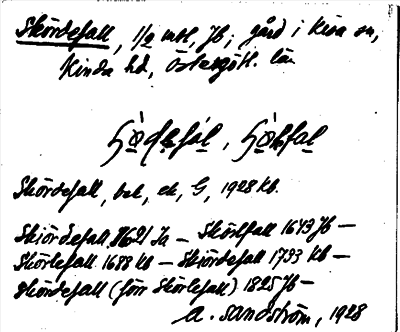 Skördefall, 1/2 mtl, Jb; gård i Kisa sn,
Kinda hd, Östergötl. län
Skördefall, bek, ek, G, 1928 kb.
Skiördefall 1621 Ja — Skörlfall 1643 Jb —
Skörlefall 1688 kb — Skiördefall 1793 kb —
Skördefall (förr Skörlefall) 1825 Jb —
A. Sandström, 1928